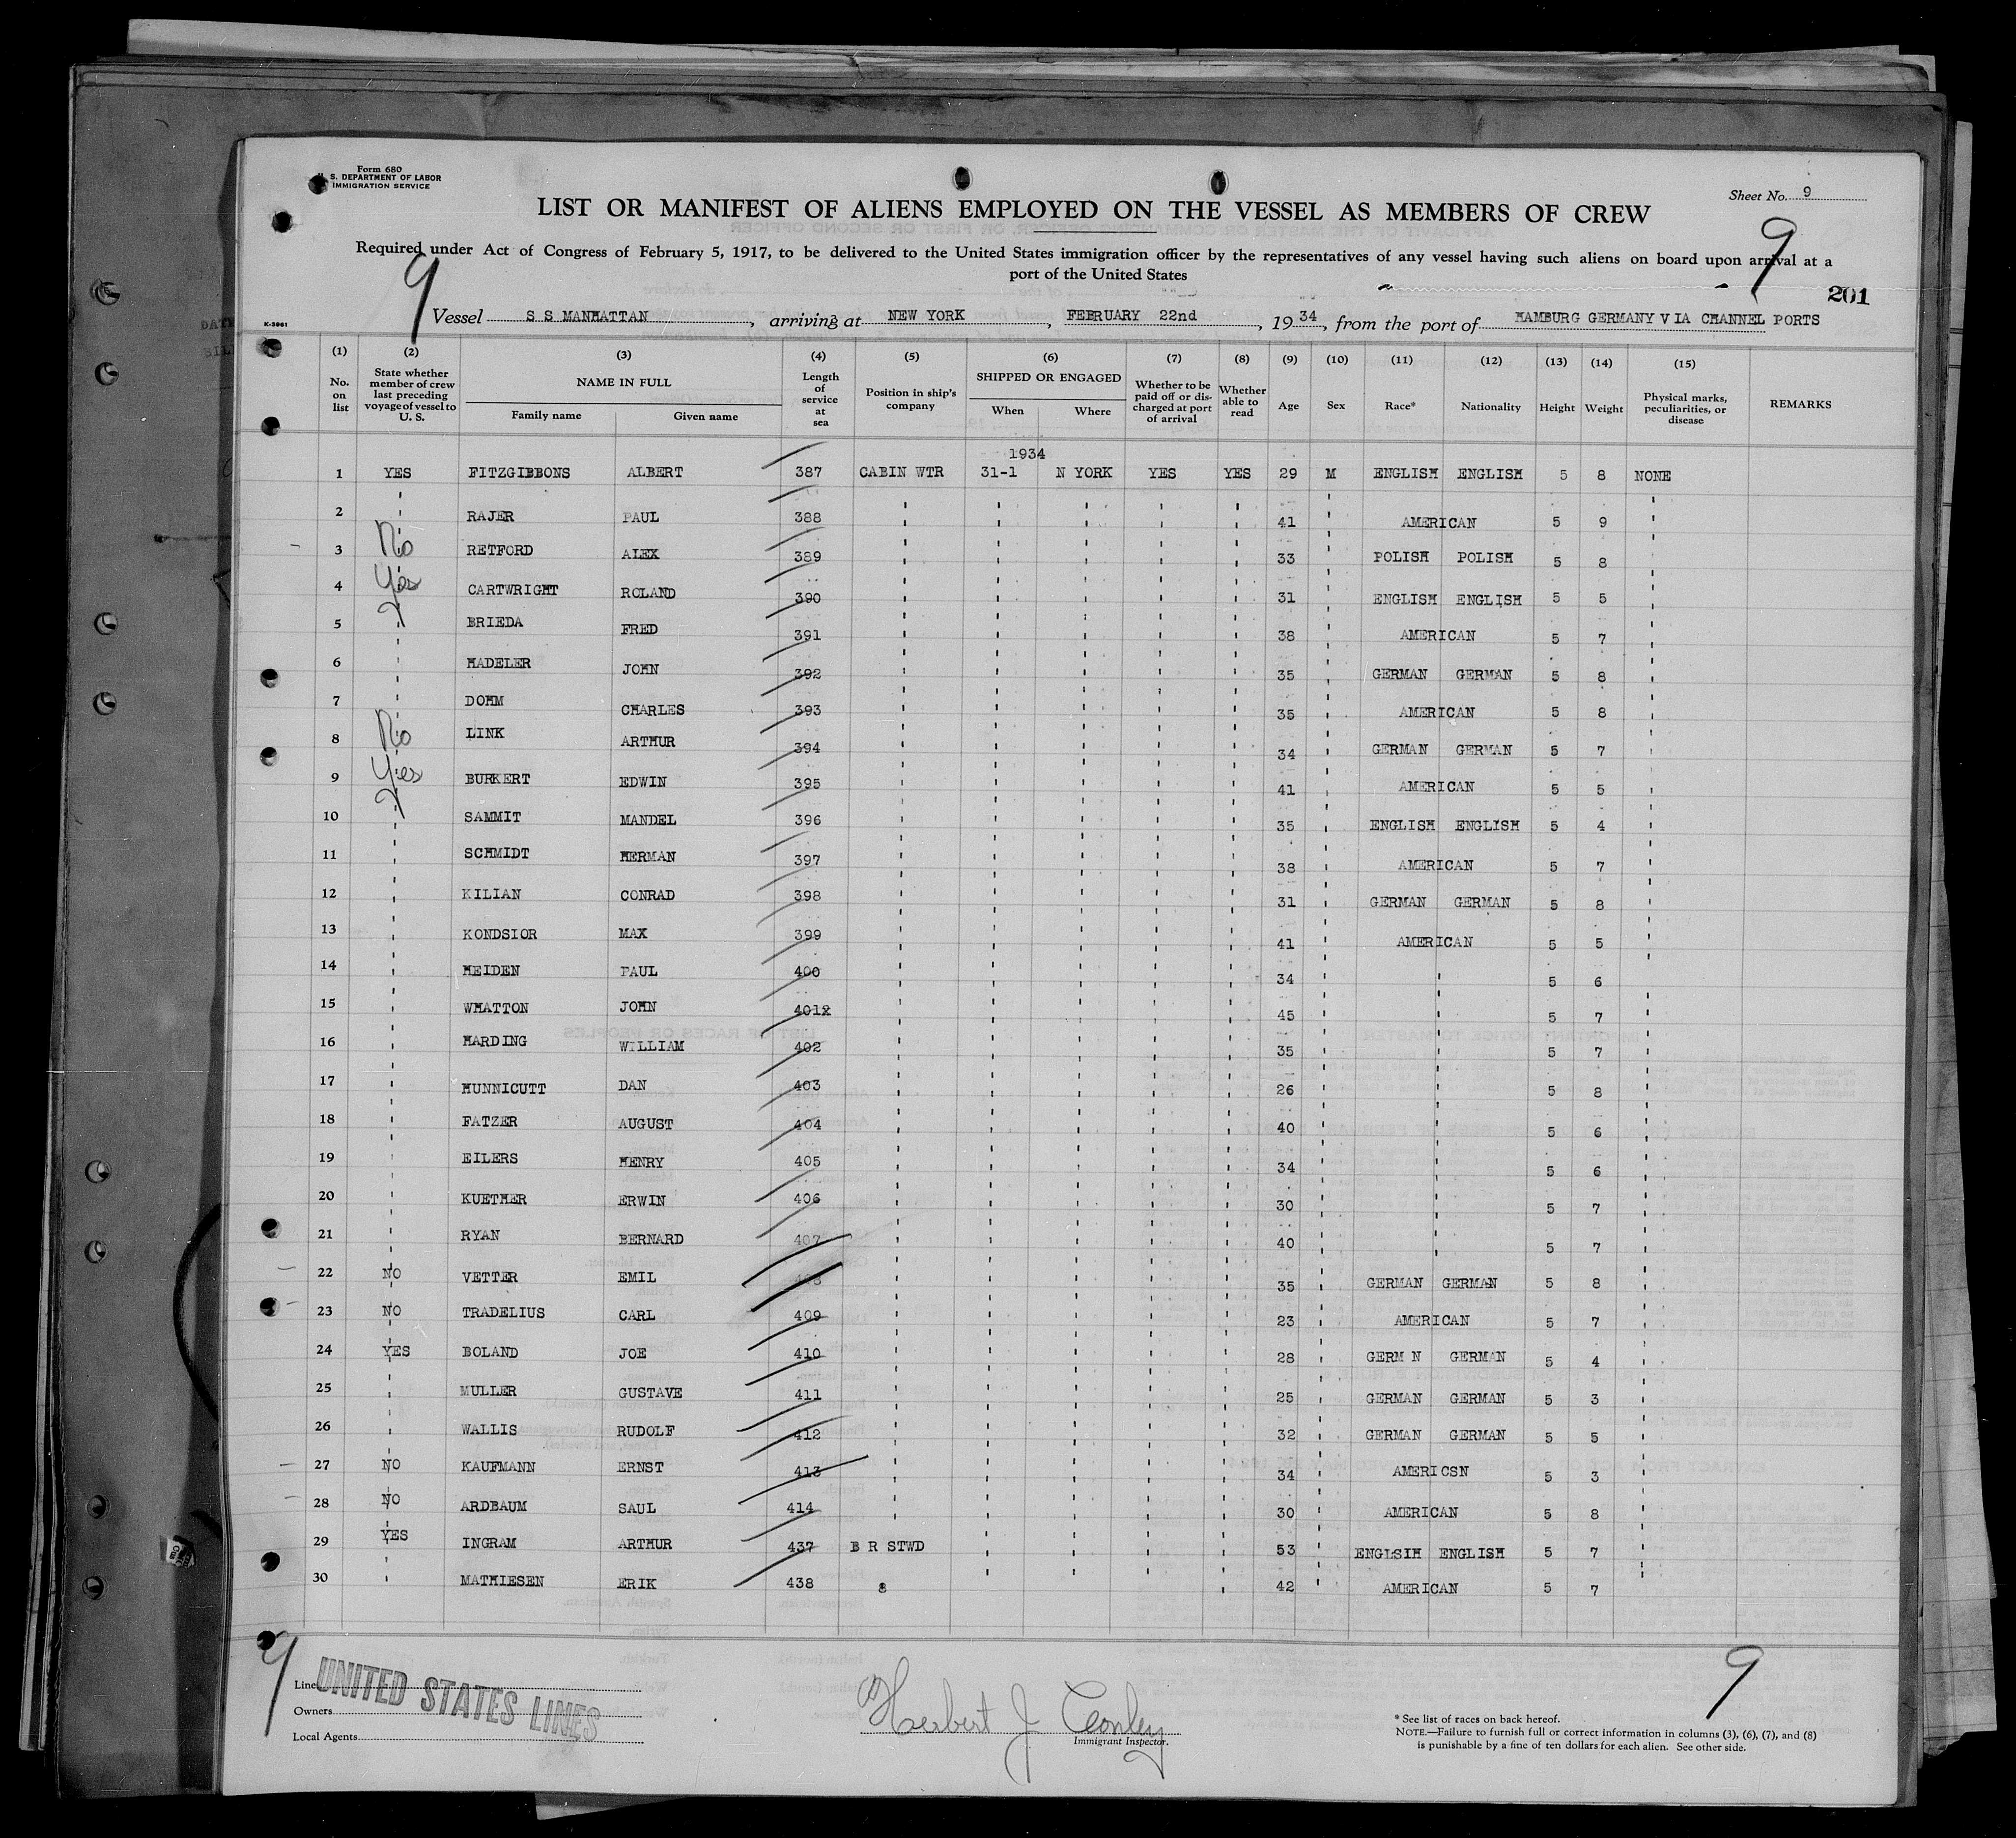 Form 680
U. S. DEPARTMENT OF LABOR
IMMIGRATION SERVICE
Sheet No. 9
LIST OR MANIFEST OF ALIENS EMPLOYED ON THE VESSEL AS MEMBERS OF CREW
Required under Act of Congress of February 5, 1917, to be delivered to the United States immigration officer by the representatives of any vessel having such aliens on board upon arrival at a
port of the United States
9 9
201
K-3961
Vessel S S MANHATTAN, arriving at NEW YORK, FEBRUARY 22nd, 1934, from the port of HAMBURG GERMANY VIA CHANNEL PORTS
(1) (2) (3) (4) (5) (6) (7) (8) (9) (10) (11) (12) (13) (14) (15)
No. on list State whether member of crew last preceding voyage of vessel to U. S. NAME IN FULL Family name Given name Length of service at sea Position in ship's company SHIPPED OR ENGAGED When Where Whether to be paid off or discharged at port of arrival Whether able to read Age Sex Race* Nationality Height Weight Physical marks, peculiarities, or disease REMARKS
1934
1 YES FITZGIBBONS ALBERT 387 CABIN WTR 31-1 N YORK YES YES 29 M ENGLISH ENGLISH 5 8 NONE
2 " RAJER PAUL 388 " " " " " 41 " AMERICAN 5 9 "
3 No RETFORD ALEX 389 " " " " " 33 " POLISH POLISH 5 8 "
4 Yes CARTWRIGHT ROLAND 390 " " " " " 31 " ENGLISH ENGLISH 5 5 "
5 " BRIEDA FRED 391 " " " " " 38 " AMERICAN 5 7 "
6 " HADELER JOHN 392 " " " " " 35 " GERMAN GERMAN 5 8 "
7 " DOHM CHARLES 393 " " " " " 35 " AMERICAN 5 8 "
8 No LINK ARTHUR 394 " " " " " 34 " GERMAN GERMAN 5 7 "
9 Yes BURKERT EDWIN 395 " " " " " 41 " AMERICAN 5 5 "
10 " SAMMIT MANDEL 396 " " " " " 35 " ENGLISH ENGLISH 5 4 "
11 " SCHMIDT HERMAN 397 " " " " " 38 " AMERICAN 5 7 "
12 " KILIAN CONRAD 398 " " " " " 31 " GERMAN GERMAN 5 8 "
13 " KONDSIOR MAX 399 " " " " " 41 " AMERICAN 5 5 "
14 " HEIDEN PAUL 400 " " " " " 34 " " 5 6 "
15 " WHATTON JOHN 401x " " " " " 45 " " 5 7 "
16 " HARDING WILLIAM 402 " " " " " 35 " " 5 7 "
17 " HUNNICUTT DAN 403 " " " " " 26 " " 5 8 "
18 " FATZER AUGUST 404 " " " " " 40 " " 5 6 "
19 " EILERS HENRY 405 " " " " " 34 " " 5 6 "
20 " KUETHER ERWIN 406 " " " " " 30 " " 5 7 "
21 " RYAN BERNARD 407 " " " " " 40 " " 5 7 "
22 NO VETTER EMIL 408 " " " " " 35 " GERMAN GERMAN 5 8 "
23 NO TRADELIUS CARL 409 " " " " " 23 " AMERICAN 5 7 "
24 YES BOLAND JOE 410 " " " " " 28 " GERM N GERMAN 5 4 "
25 " MULLER GUSTAVE 411 " " " " " 25 " GERMAN GERMAN 5 3 "
26 " WALLIS RUDOLF 412 " " " " " 32 " GERMAN GERMAN 5 5 "
27 NO KAUFMANN ERNST 413 " " " " " 34 " AMERICSN 5 3 "
28 NO ARDBAUM SAUL 414 " " " " " 30 " AMERICAN 5 8 "
29 YES INGRAM ARTHUR 437 B R STWD " " " " 53 " ENGLSIH ENGLISH 5 7 "
30 " MATHIESEN ERIK 438 8 " " " " 42 " AMERICAN 5 7 "
9 9
Line UNITED STATES LINES
Owners
Local Agents
Herbert J Conley
Immigrant Inspector.
* See list of races on back hereof.
NOTE.—Failure to furnish full or correct information in columns (3), (6), (7), and (8)
is punishable by a fine of ten dollars for each alien. See other side.